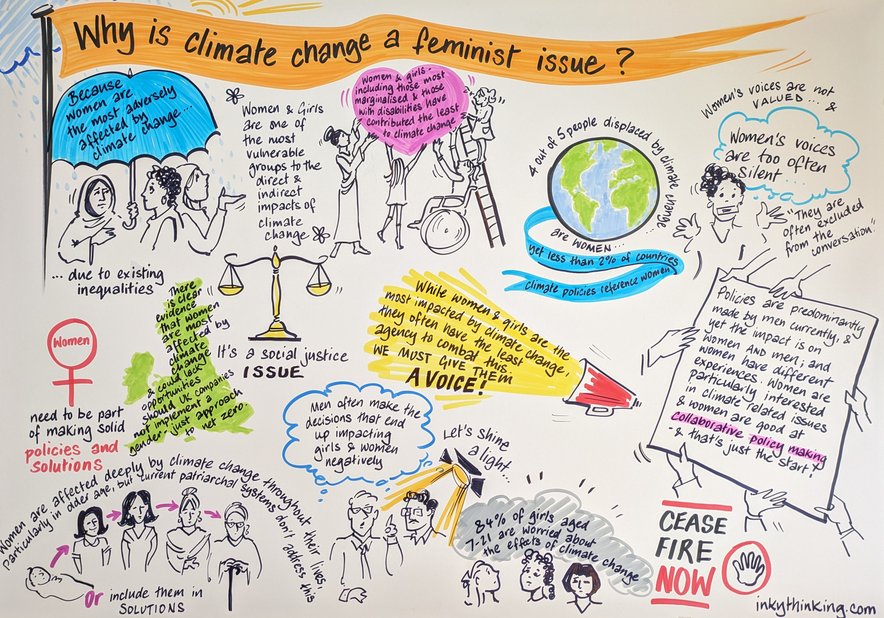 Why is climate change a feminist issue?
Because
women are
the most adversely
affected by
climate change...
... due to existing
inequalities
Women & Girls
are one of
the most
vulnerable
groups to the
direct &
indirect
impacts of
climate
change
Women & girls -
including those most
marginalised & those
with disabilities have
contributed the least
to climate change
4 out of 5 people displaced by climate change...
are WOMEN...
yet less than 2% of countries
climate policies reference women
Women's voices are not
VALUED... &
Women's voices
are too often
silent...
"They are
often excluded
from the
conversation."
Women
need to be part
of making solid
policies and
solutions
There
is clear
evidence
that women
are most
affected by
climate
change
& could lack
opportunities
should UK companies
not implement a
gender-just approach
to net zero.
It's a social justice
ISSUE
While women & girls are the
most impacted by climate change,
they often have the least
agency to combat this.
WE MUST GIVE THEM
A VOICE!
Policies are predominantly
made by men currently, &
yet the impact is on
women AND men; and
women have different
experiences. Women are
particularly interested
in climate related issues
& women are good at
collaborative policy making
- & that's just the start!
Men often make the
decisions that end
up impacting
girls & women
negatively
Let's shine
a light...
84% of girls aged
7-21 are worried about
the effects of climate change
Women are affected deeply by climate change throughout their lives,
particularly in older age, but current patriarchal systems don't address this
Or include them in
SOLUTIONS
CEASE
FIRE
NOW
inkythinking.com